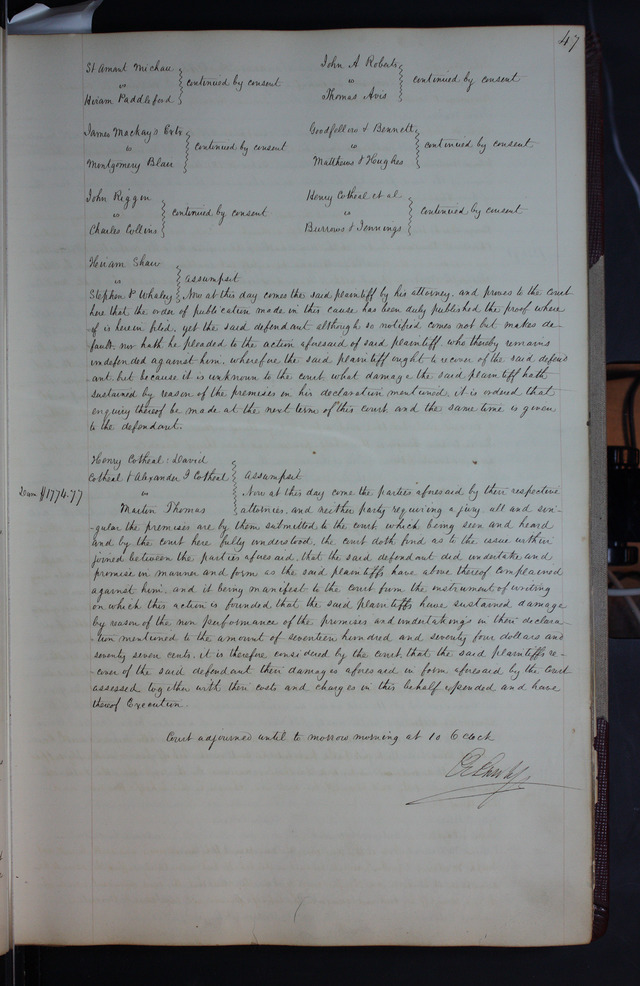 47
St Amant Michau
vs
Hiram Paddleford
continued by consent
John A Roberts
vs
Thomas Avis
continued by consent
James Mackay's Extr
vs
Montgomery Blair
continued by consent
Goodfellow & Bennett
vs
Matthews & Hughes
continued by consent
John Riggin
vs
Charles Collins
continued by consent
Henry Cotheal et al
vs
Burrows & Jennings
continued by consent
Hiram Shaw
vs
Assumpsit
Stephen P Whaley Now at this day comes the said plaintiff by his attorney, and proves to the Court
here that the order of publication made in this cause has been duly published the proof where
of is herein filed, yet the said defendant although so notified comes not but makes de-
fault, nor hath he pleaded to the action aforesaid of said plaintiff, who thereby remains
undefended against him, wherefore the said plaintiff ought to recover of the said defend
ant, but because it is unknown to the court what damage the said plaintiff hath
sustained by reason of the premises in his declaration mentioned, it is ordered that
enquiry thereof be made at the next term of this court, and the same time is given
to the defendant.
Henry Cotheal, David
Cotheal & Alexander I Cotheal
vs
Martin Thomas
Assumpsit
Dam $1774.77
Now at this day come the parties aforesaid by their respective
attornies, and neither party requiring a jury, all and sin-
-gular the premises are by them submitted to the court, which being seen and heard
and by the court here fully understood, the court doth find as to the issue within
joined between the parties aforesaid, that the said defendant did undertake and
promise in manner and form as the said plaintiffs have above thereof complained
against him, and it being manifest to the Court from the instrument of writing
on which this action is founded, that the said plaintiffs have sustained damage
by reason of the non performance of the premises and undertakings in their declara-
-tion mentioned to the amount of seventeen hundred and seventy four dollars and
seventy seven cents, it is therefore considered by the court, that the said plaintiffs re-
-cover of the said defendant their damages aforesaid in form aforesaid by the Court
assessed together with their costs and charges in this behalf expended and have
thereof Execution.
Court adjourned until to morrow morning at 10 O'clock